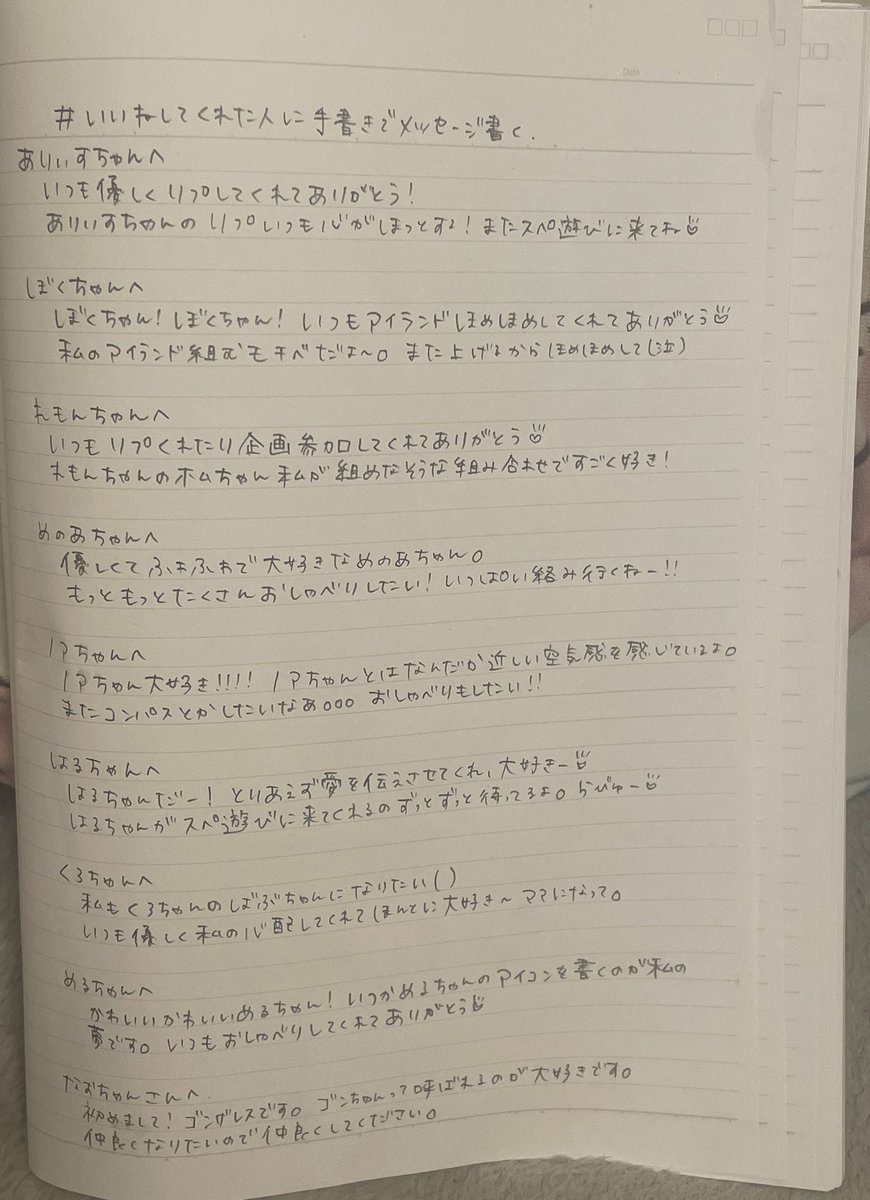 Date
#いいねしてくれた人に手書きでメッセージ書く.
ありぃすちゃんへ
いつも優しくリプしてくれてありがとう!
ありぃすちゃんのリプいつも心がほっとする!またスペ遊びに来てね
ぼくちゃんへ
ぼくちゃん!ぼくちゃん!いつもアイランドほめほめしてくれてありがとう
私のアイランド組むモチベだよ〜。また上げるからほめほめして(泣)
れもんちゃんへ
いつもリプくれたり企画参加してくれてありがとう
れもんちゃんのホムちゃん私が組めなそうな組み合わせですごく好き!
めのあちゃんへ
優しくてふわふわで大好きなめのあちゃん。
もっともっとたくさんおしゃべりしたい!いっぱい絡み行くねー!!
ノアちゃんへ
ノアちゃん大好き!!!!ノアちゃんとはなんだか近しい空気感を感じているよ。
またコンパスとかしたいなあ。。。おしゃべりもしたい!!
はるちゃんへ
はるちゃんだー!とりあえず愛を伝えさせてくれ、大好きー
はるちゃんがスペ遊びに来てくれるのずっとずっと待ってるよ。らびゅー
くろちゃんへ
私もくろちゃんのばぶちゃんになりたい()
いつも優しく私の心配してくれてほんとに大好き〜ママになって。
めるちゃんへ
かわいいかわいいめるちゃん!いつかめるちゃんのアイコンを書くのが私の
夢です。いつもおしゃべりしてくれてありがとう
なおちゃんさんへ
初めまして!ゴングレスです。ゴンちゃんって呼ばれるのが大好きです。
仲良くなりたいので仲良くしてください。